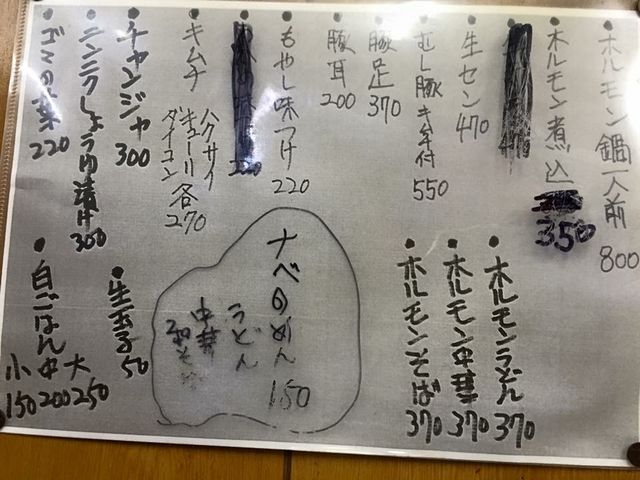 ホルモン鍋一人前 800
●ホルモン煮込 350
●生セン 470
●むし豚キムチ付 550
●豚足 370
●豚耳 200
●もやし味つけ 220
●キムチ
ハクサイ
キューリ 各270
ダイコン
●チャンジャ 300
●ニンニクしょうゆ漬け 300
●ゴマの葉 220
●ホルモンうどん 370
●ホルモン中華 370
●ホルモンそば 370
ナベのめん 150
うどん
中華
●生玉子 50
●白ごはん
大 250
中 200
小 150